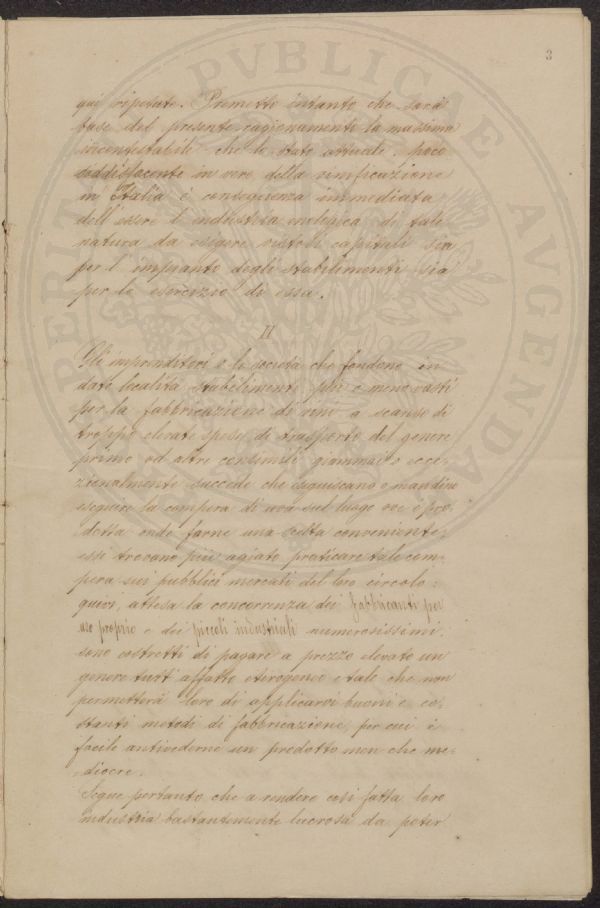 3
qui riputato. Premetto intanto che sarà
base del presente ragionamento la massima
incontestabile che lo stato attuale, poco
soddisfacente in vero, della vinificazione
in Italia è conseguenza immediata
dell'essere l'industria enologica di tale
natura da esigere vistosi capitali sia
per l'impianto degli stabilimenti sia
per lo esercizio di essa.
II
Gli imprenditori o le società che fondono in
date località stabilimenti più o meno vasti
per la fabbricazione di vini a scanso di
troppo elevate spese di trasporto del genere
primo od altre consimili giammai o ecce-
zionalmente succede che eseguiscano o mandino
eseguire la compera di uva sul luogo ove è pro-
dotta onde farne una scelta conveniente;
essi trovano più agiato praticare tale com-
pera sui pubblici mercati del loro circolo:
quivi, attesa la concorrenza dei fabbricanti per
uso proprio e dei piccoli industriali numerosissimi,
sono costretti di pagare a prezzo elevato un
genere tutt'affatto eterogeneo e tale che non
permetterà loro di applicarvi buoni e co-
stanti metodi di fabbricazione, per cui è
facile antivederne un prodotto men che me-
diocre.
Segue pertanto che a rendere così fatta loro
industria bastantemente lucrosa da poter
PERITIA PVBLICAE AVGENDAE